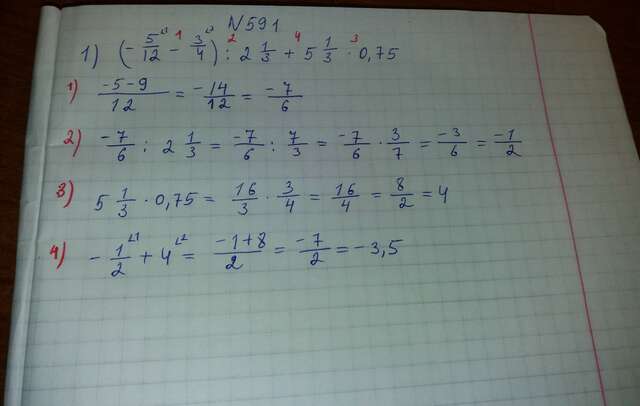 N 591
1) (-5/12 - 3/4) : 2 1/3 + 5 1/3 · 0,75
1) (-5-9)/12 = -14/12 = -7/6
2) -7/6 : 2 1/3 = -7/6 : 7/3 = -7/6 · 3/7 = -3/6 = -1/2
3) 5 1/3 · 0,75 = 16/3 · 3/4 = 16/4 = 8/2 = 4
4) -1/2 + 4 = (-1+8)/2 = -7/2 = -3,5